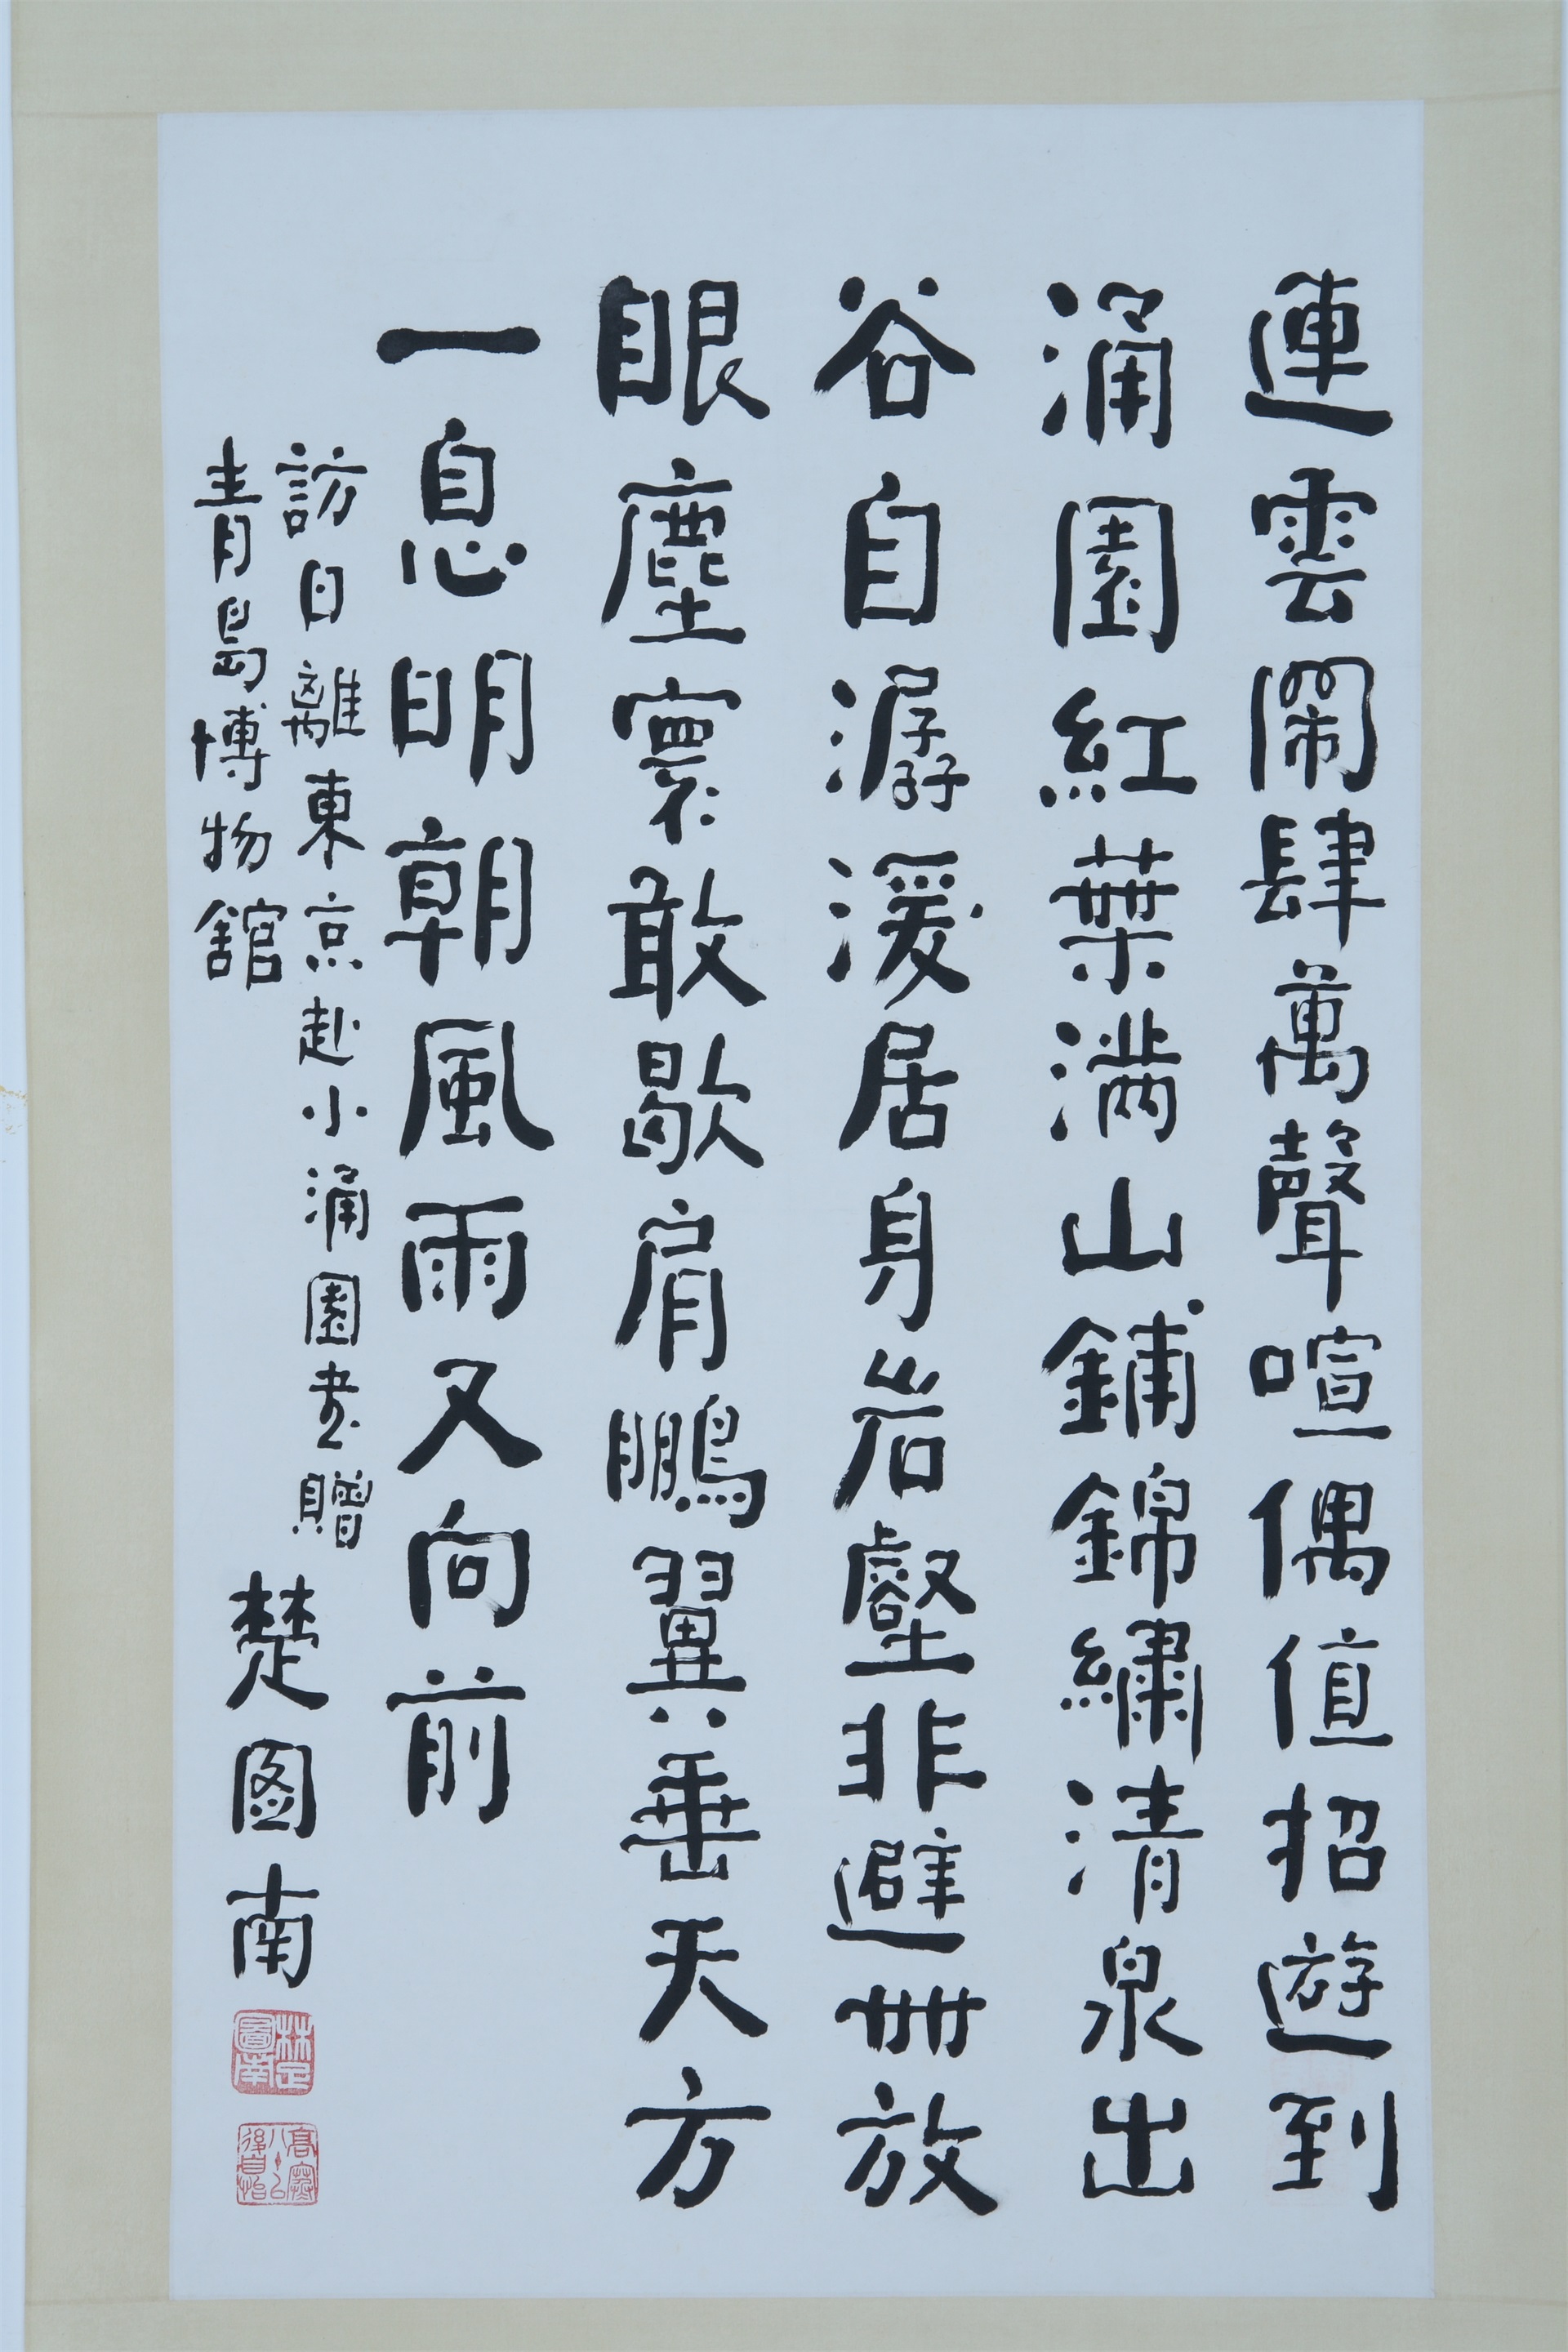 連雲鬧肆萬聲喧偶值招遊到
涌園紅葉满山鋪錦繡清泉出
谷自潺湲居身岩壑非避世放
眼塵寰敢歇肩鵬翼垂天方
一息明朝風雨又向前
訪日離東京赴小涌園书贈
青島博物舘
楚图南
楚圖南